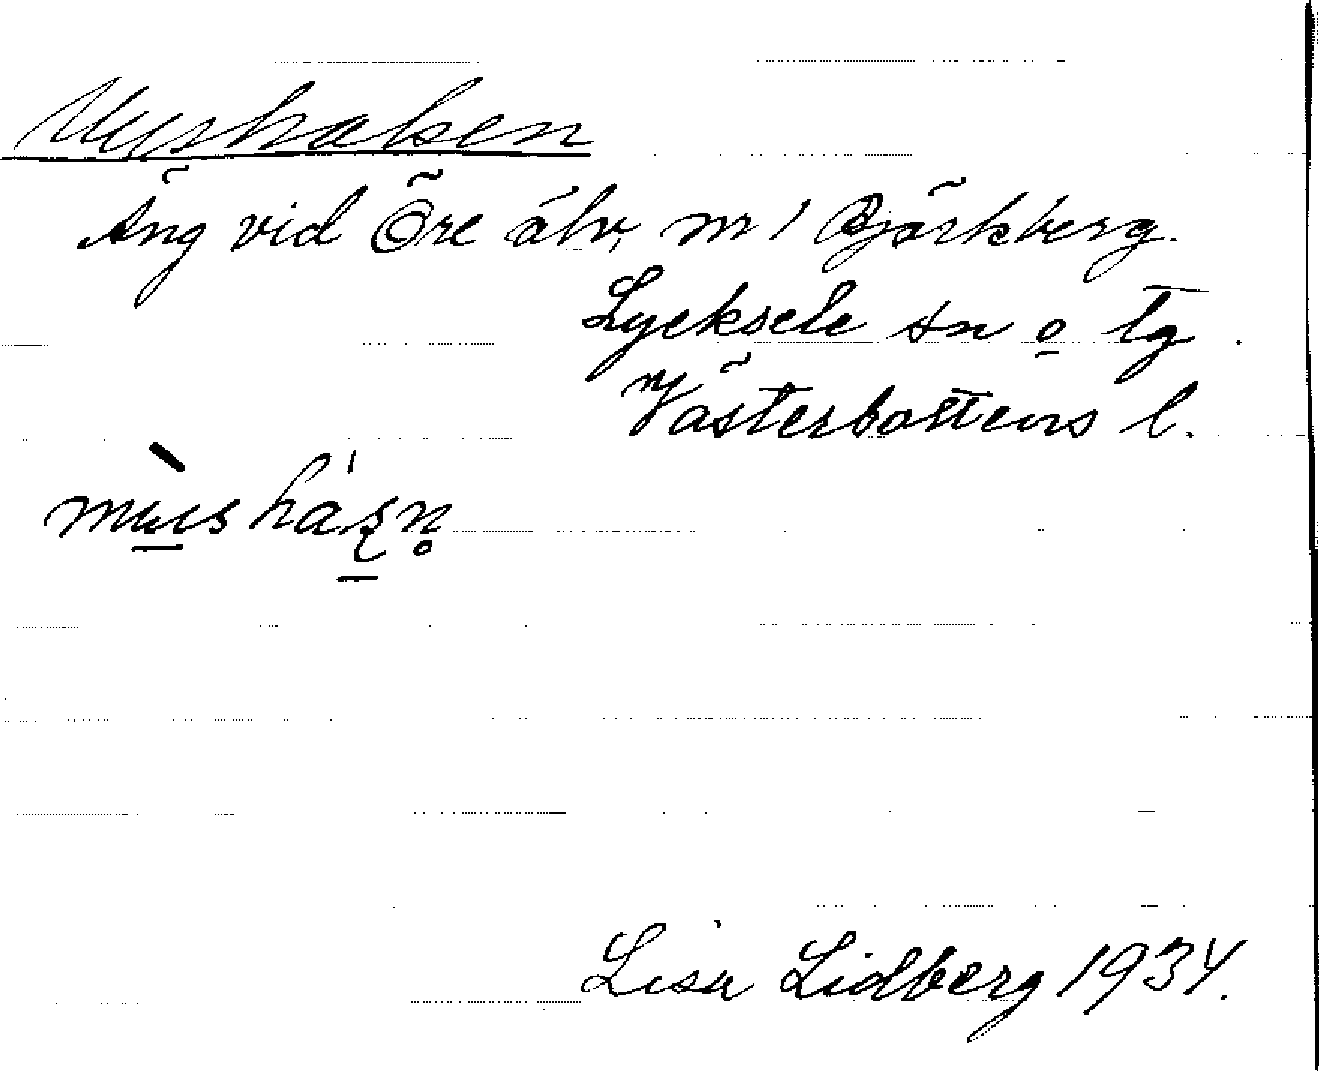 Myshalsen
Äng vid Öre älv, m / Björkberg.
Lycksele sn o lg.
Västerbottens l.
Lisa Lidberg 1934.